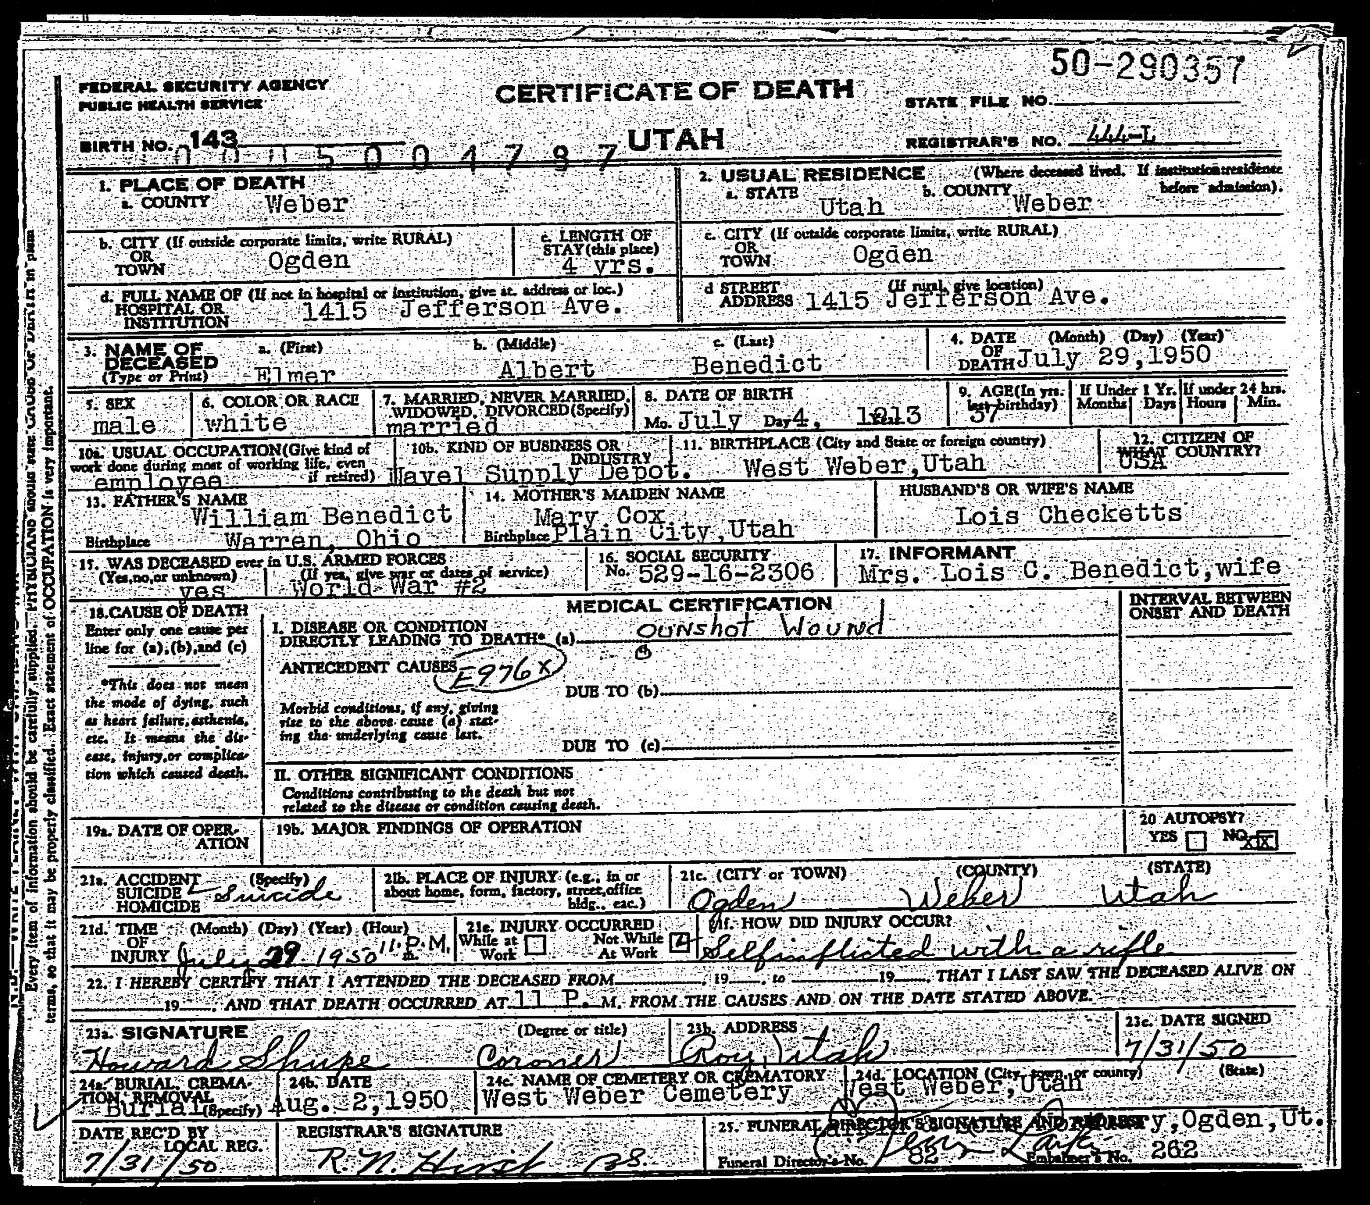 50-290357
FEDERAL SECURITY AGENCY
PUBLIC HEALTH SERVICE
CERTIFICATE OF DEATH
STATE FILE NO.
BIRTH NO. 143
UTAH
REGISTRAR'S NO. 444-L
1. PLACE OF DEATH
a. COUNTY Weber
2. USUAL RESIDENCE (Where deceased lived. If institution: residence before admission).
a. STATE Utah b. COUNTY Weber
b. CITY (If outside corporate limits, write RURAL) OR TOWN Ogden
c. LENGTH OF STAY (this place) 4 yrs.
c. CITY (If outside corporate limits, write RURAL) OR TOWN Ogden
d. FULL NAME OF (If not in hospital or institution, give st. address or loc.) HOSPITAL OR INSTITUTION 1415 Jefferson Ave.
d STREET ADDRESS (If rural, give location) 1415 Jefferson Ave.
3. NAME OF DECEASED (Type or Print) a. (First) Elmer b. (Middle) Albert c. (Last) Benedict
4. DATE OF DEATH (Month) (Day) (Year) July 29,1950
5. SEX male
6. COLOR OR RACE white
7. MARRIED, NEVER MARRIED, WIDOWED, DIVORCED (Specify) married
8. DATE OF BIRTH Mo. July Day 4, Year 1913
9. AGE (In yrs. last birthday) 37
If Under 1 Yr. Months Days
If under 24 hrs. Hours Min.
10a. USUAL OCCUPATION (Give kind of work done during most of working life, even if retired) employee
10b. KIND OF BUSINESS OR INDUSTRY Navel Supply Depot.
11. BIRTHPLACE (City and State or foreign country) West Weber, Utah
12. CITIZEN OF WHAT COUNTRY? USA
13. FATHER'S NAME William Benedict
Birthplace Warren, Ohio
14. MOTHER'S MAIDEN NAME Mary Cox
Birthplace Plain City, Utah
HUSBAND'S OR WIFE'S NAME Lois Checketts
15. WAS DECEASED ever in U.S. ARMED FORCES (Yes, no, or unknown) yes (If yes, give war or dates of service) World War #2
16. SOCIAL SECURITY No. 529-16-2306
17. INFORMANT Mrs. Lois C. Benedict, wife
18. CAUSE OF DEATH
Enter only one cause per line for (a), (b), and (c)
*This does not mean the mode of dying, such as heart failure, asthenia, etc. It means the disease, injury, or complication which caused death.
MEDICAL CERTIFICATION
INTERVAL BETWEEN ONSET AND DEATH
I. DISEASE OR CONDITION DIRECTLY LEADING TO DEATH* (a) Gunshot Wound
ANTECEDENT CAUSES E976X
DUE TO (b)
Morbid conditions, if any, giving rise to the above cause (a) stating the underlying cause last.
DUE TO (c)
II. OTHER SIGNIFICANT CONDITIONS
Conditions contributing to the death but not related to the disease or condition causing death.
19a. DATE OF OPERATION
19b. MAJOR FINDINGS OF OPERATION
20 AUTOPSY? YES NO XIX
21a. ACCIDENT SUICIDE HOMICIDE (Specify) Suicide
21b. PLACE OF INJURY (e.g., in or about home, form, factory, street, office bldg., etc.)
21c. (CITY or TOWN) (COUNTY) (STATE) Ogden Weber Utah
21d. TIME OF INJURY (Month) (Day) (Year) (Hour) July 29 1950 11 P.M.
21e. INJURY OCCURRED While at Work Not While At Work
21f. HOW DID INJURY OCCUR? Self inflicted with a rifle
22. I HEREBY CERTIFY THAT I ATTENDED THE DECEASED FROM , 19 , to 19 , THAT I LAST SAW THE DECEASED ALIVE ON
19 , AND THAT DEATH OCCURRED AT 11 P. M, FROM THE CAUSES AND ON THE DATE STATED ABOVE.
23a. SIGNATURE (Degree or title) Howard Shupe Coroner
23b. ADDRESS Roy, Utah
23c. DATE SIGNED 7/31/50
24a. BURIAL, CREMATION, REMOVAL (Specify) Burial
24b. DATE Aug. 2,1950
24c. NAME OF CEMETERY OR CREMATORY West Weber Cemetery
24d. LOCATION (City, town, or county) (State) West Weber, Utah
DATE REC'D BY LOCAL REG. 7/31/50
REGISTRAR'S SIGNATURE R. N. Hirst BS.
25. FUNERAL DIRECTOR'S SIGNATURE AND ADDRESS Ogden, Ut.
Funeral Director's No. 82 Embalmer's No. 262
Every item of information should be carefully supplied.
terms, so that it may be properly classified. Exact statement of OCCUPATION is very important.